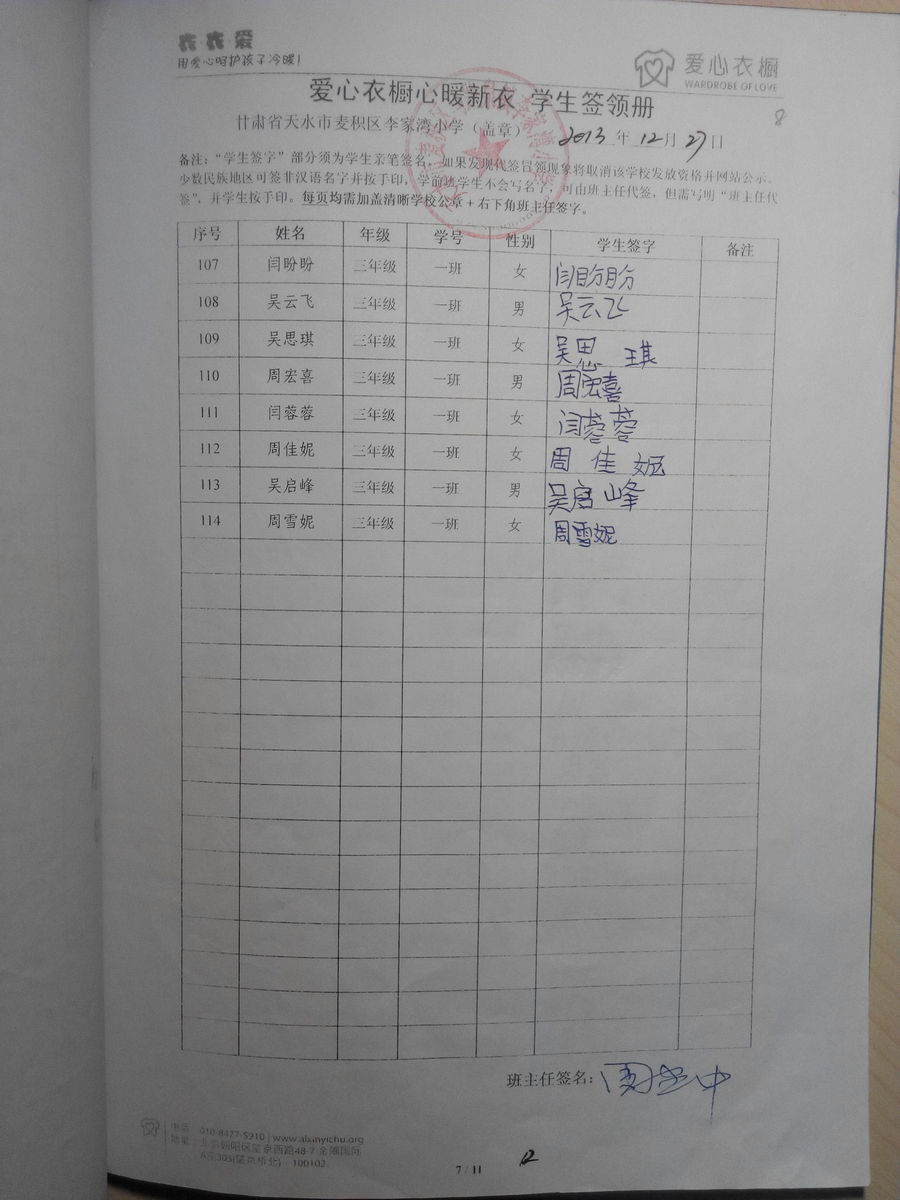 衣衣爱
用爱心呵护孩子冷暖！
爱心衣橱
WARDROBE OF LOVE
8
爱心衣橱心暖新衣 学生签领册
甘肃省天水市麦积区李家湾小学（盖章） 2013 年 12 月 27 日
备注：“学生签字”部分须为学生亲笔签名，如果发现代签冒领现象将取消该学校发放资格并网站公示。
少数民族地区可签非汉语名字并按手印，学前班学生不会写名字，可由班主任代签，但需写明“班主任代
签”，并学生按手印。每页均需加盖清晰学校公章+右下角班主任签字。
序号 姓名 年级 学号 性别 学生签字 备注
107 闫盼盼 三年级 一班 女 闫盼盼
108 吴云飞 三年级 一班 男 吴云飞
109 吴思琪 三年级 一班 女 吴思琪
110 周宏喜 三年级 一班 男 周宏喜
111 闫蓉蓉 三年级 一班 女 闫蓉蓉
112 周佳妮 三年级 一班 女 周佳妮
113 吴启峰 三年级 一班 男 吴启峰
114 周雪妮 三年级 一班 女 周雪妮
班主任签名：
电话：010-8477-5910 | www.aixinyichu.org
地址：北京朝阳区望京西路48-7 金隅国际
A座303(望京桥北)·100102
7 / 11
12